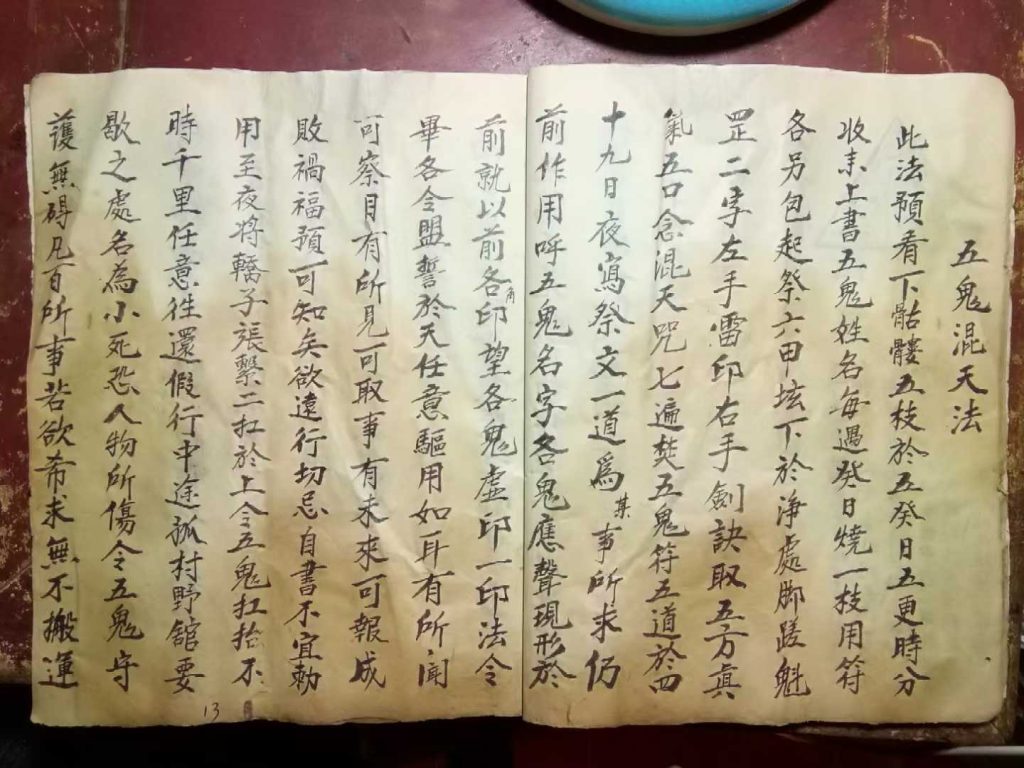 五鬼混天法
此法預看下骷髏五枝於五癸日五更時分
收末上書五鬼姓名每遇癸日燒一枝用符
各另包起祭六甲垓下於淨處脚踏魁
罡二字左手雷印右手劍訣取五方真
氣五口念混天咒七遍焚五鬼符五道於四
十九日夜寫祭文一道爲某事所求仍
前作用呼五鬼名字各鬼應聲現形於
前就以前各角印望各鬼虛印一印法令
畢各令盟誓於天任意驅用如耳有所聞
可察目有所見可取事有未來可報成
敗禍福預可知矣欲遠行切忌自書不宜勅
用至夜将轎子張繫二扛於上令五鬼扛抬不
時千里任意徃還假行中途孤村野舘要
歇之處名為小死恐人物所傷令五鬼守
護無碍凡百所事若欲希求無不搬運
13